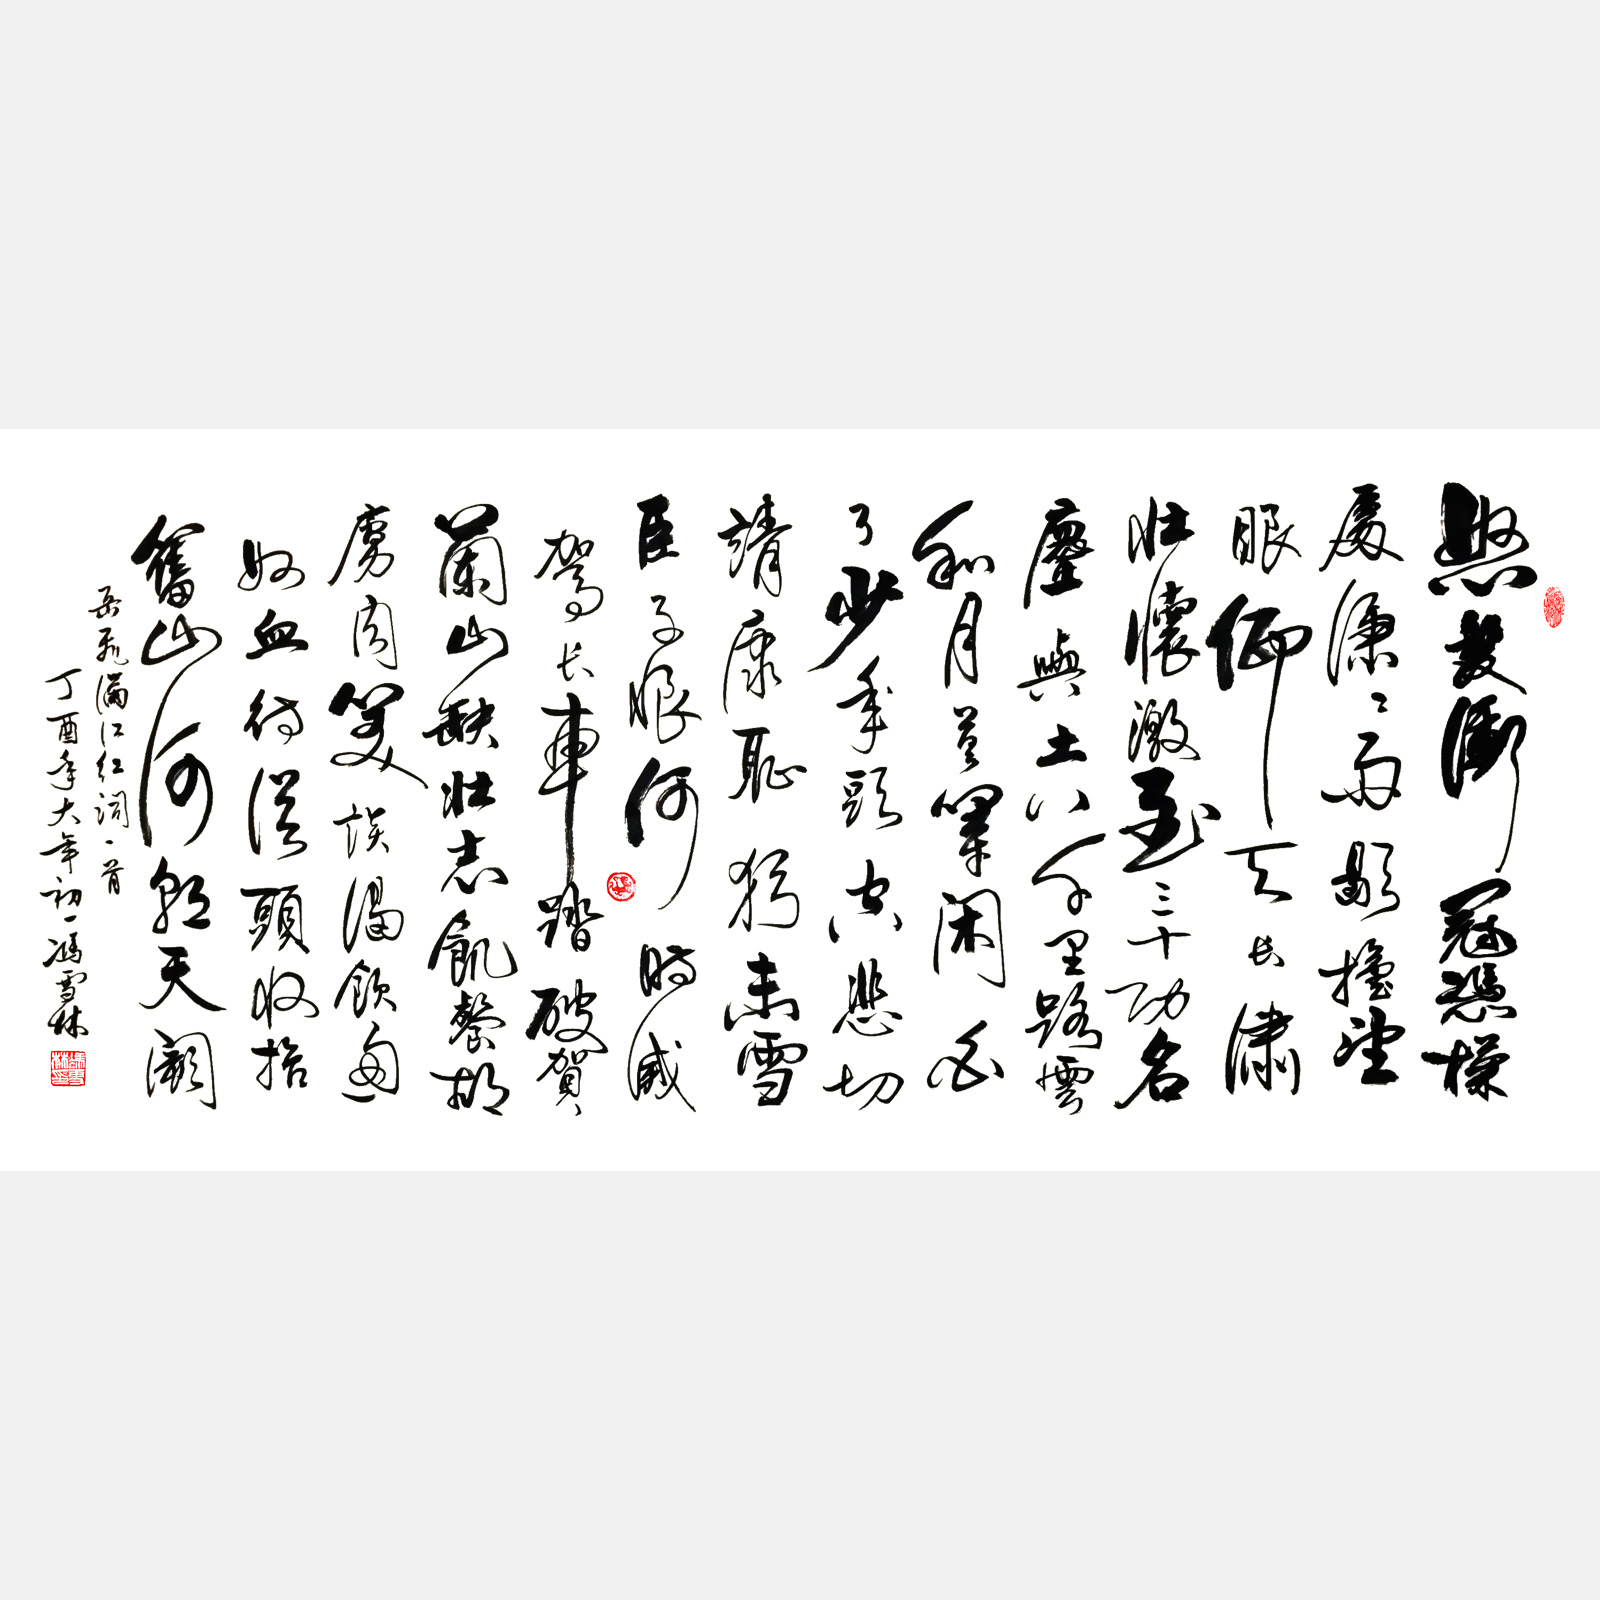 怒发衝冠憑欄
處瀟々雨歇擡望
眼仰天长啸
壮懷激烈三十功名
塵與土八千里路雲
和月莫等闲白
了少年頭空悲切
靖康恥犹未雪
臣子恨何時滅
駕长車踏破賀
蘭山缺壮志飢餐胡
虜肉笑談渴飲匈
奴血待從頭收拾
舊山河朝天阙
岳飛满江红词一首
丁酉年大年初一馮雪林